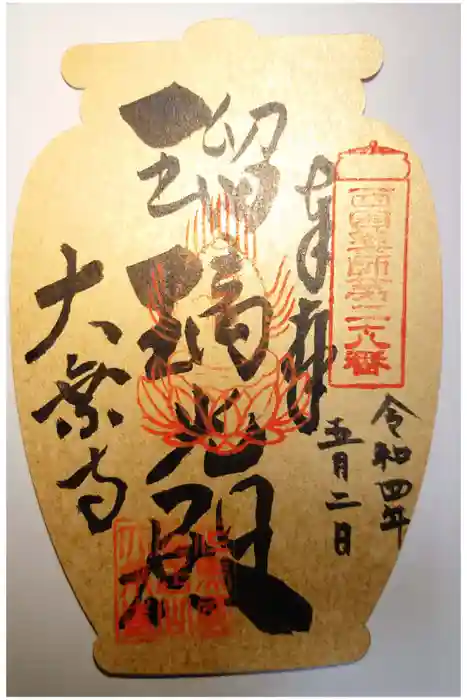 西國薬師第二十八番
奉拝
令和四年
五月二日
瑠璃光殿
大乗寺